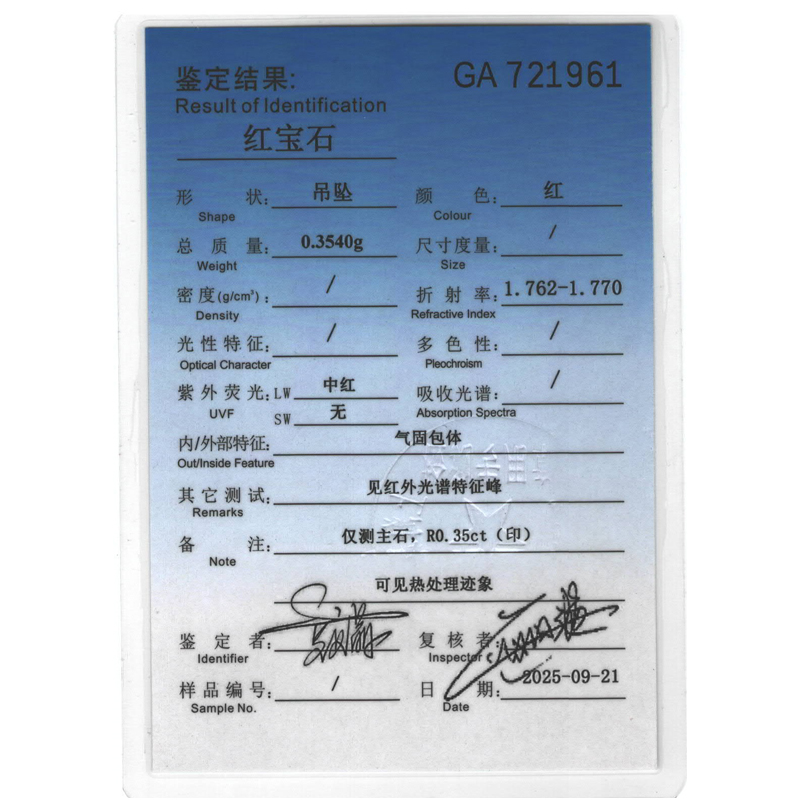 鉴定结果: GA 721961
Result of Identification
红宝石
形 状: 吊坠 颜 色: 红
Shape Colour
总 质 量: 0.3540g 尺寸度量: /
Weight Size
密 度(g/cm³): / 折 射 率: 1.762-1.770
Density Refractive Index
光性特征: / 多 色 性: /
Optical Character Pleochroism
紫外荧光: LW 中红 吸收光谱: /
UVF SW 无 Absorption Spectra
内/外部特征: 气固包体
Out/Inside Feature
其它测试: 见红外光谱特征峰
Remarks
备 注: 仅测主石, R0.35ct (印)
Note
可见热处理迹象
鉴 定 者: 复 核 者:
Identifier Inspector
样品编号: / 日 期: 2025-09-21
Sample No. Date